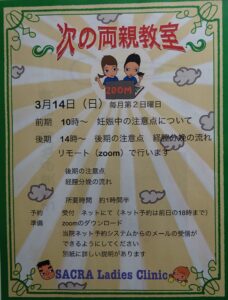 次の両親教室
ZOOM
3月14日（日）毎月第2日曜日
前期 10時〜 妊娠中の注意点について
後期 14時〜 後期の注意点 経膣分娩の流れ
リモート（zoom）で行います
後期の注意点
経膣分娩の流れ
所要時間 約1時間半
予約 受付 ネットにて（ネット予約は前日の18時まで）
準備 zoomのダウンロード
当院ネット予約システムからのメールの受信が
できるようにしてください
別紙に詳しい説明があります
SACRA Ladies Clinic